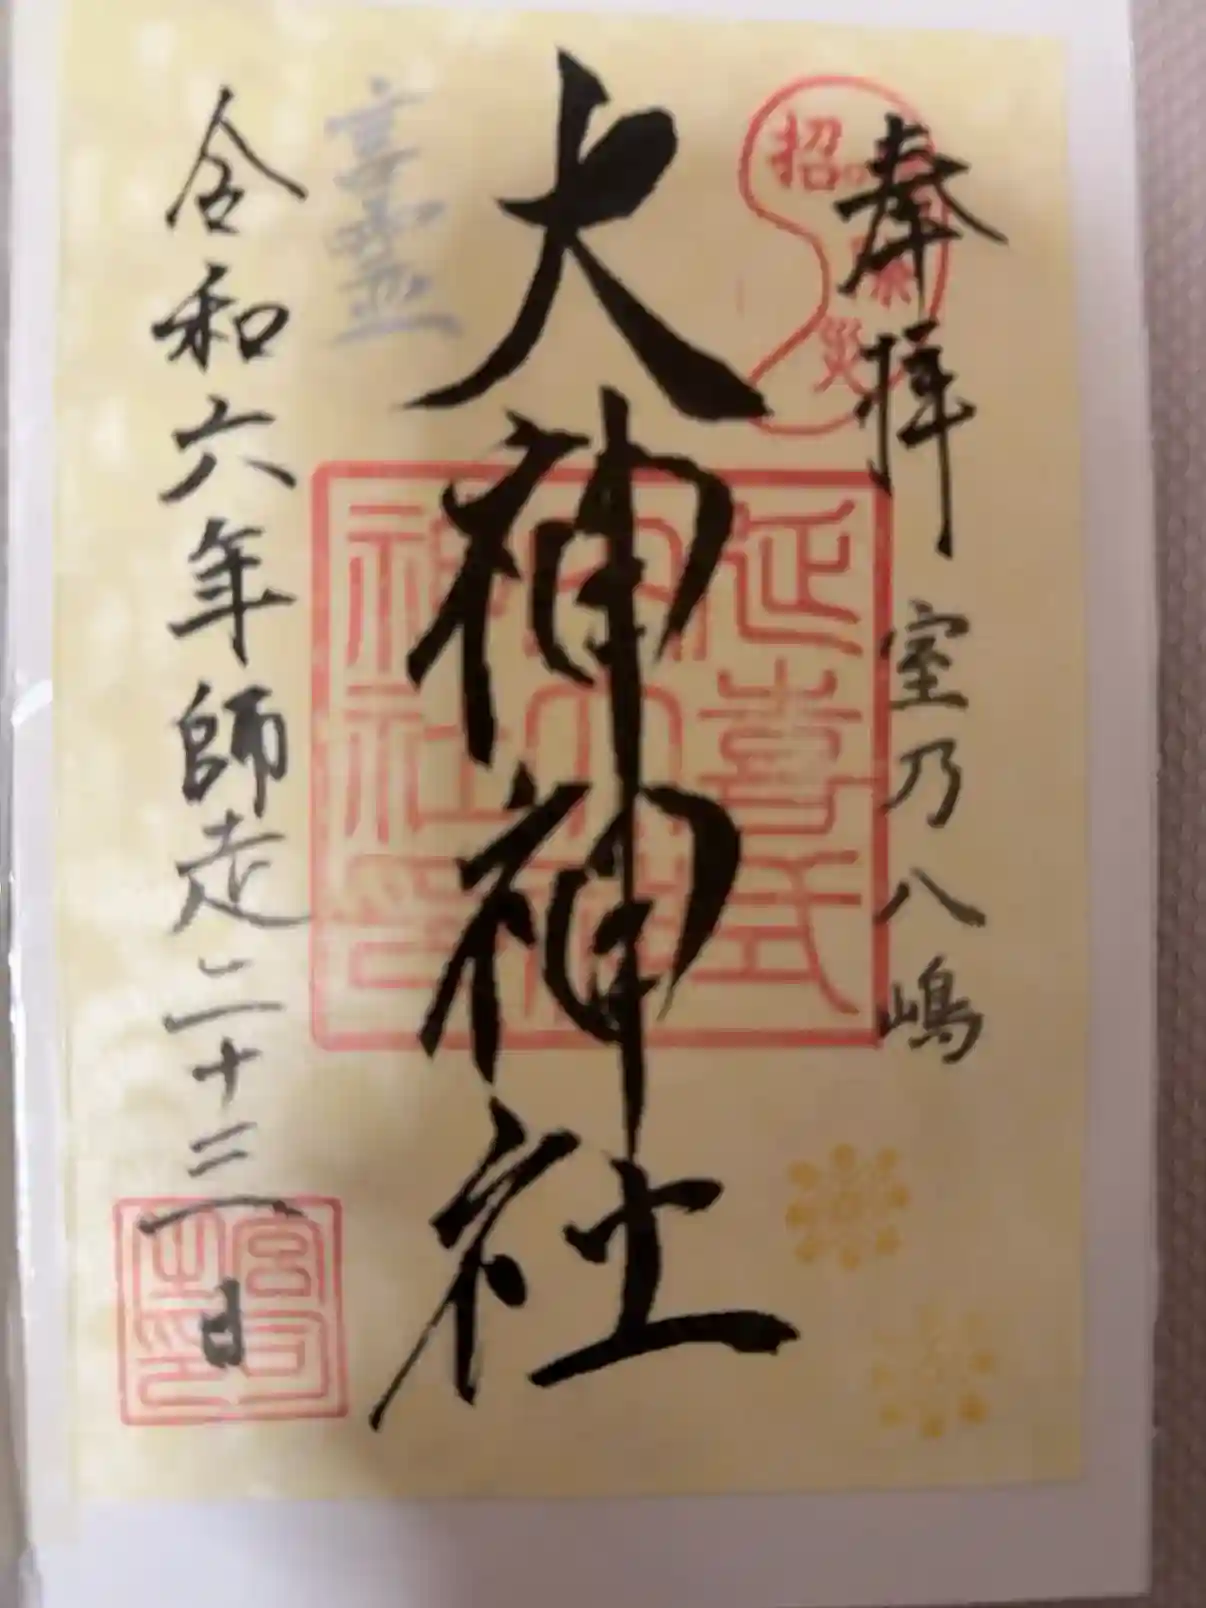 奉拝
室乃八嶋
招
災
大神神社
延喜式
神社印
令和六年師走二十三日
宮司之印